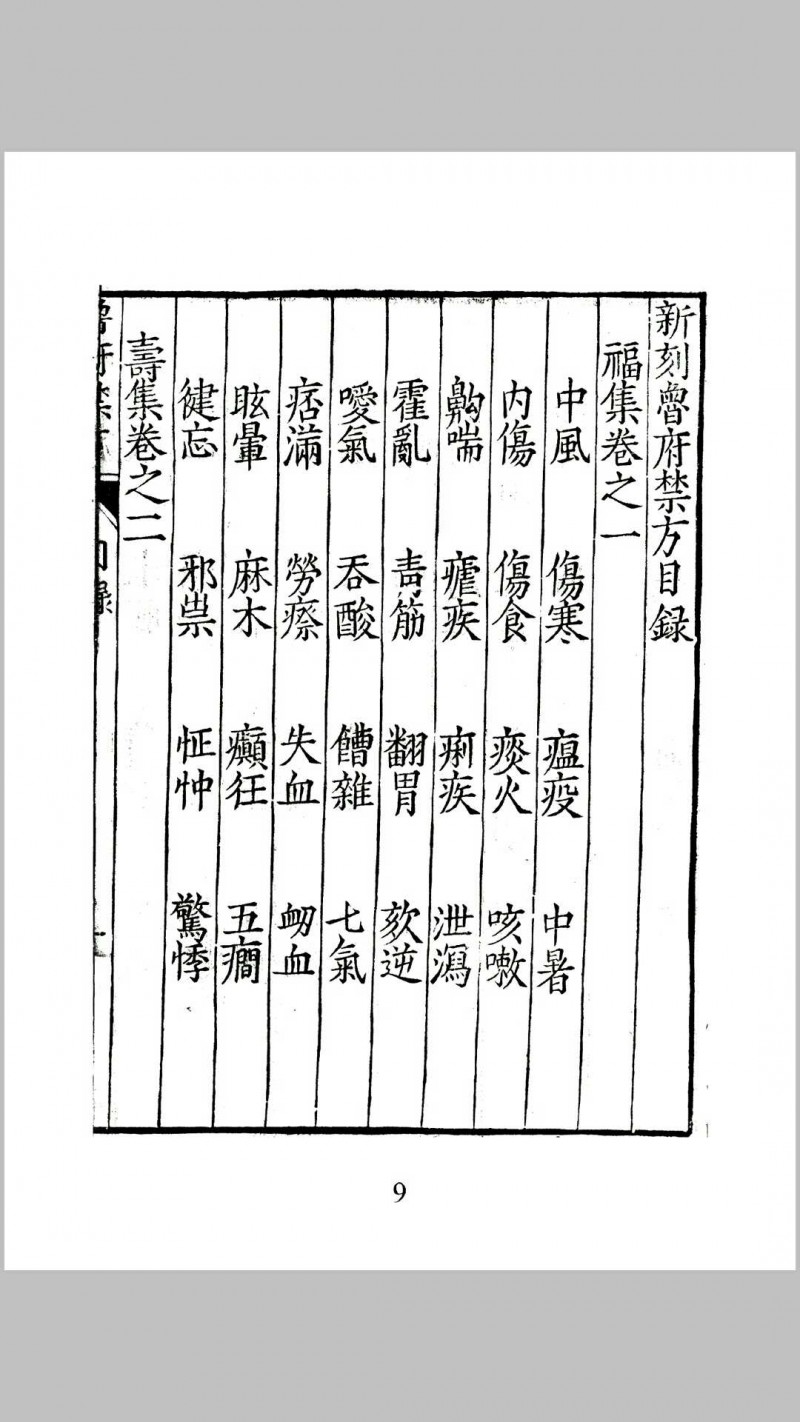 新刻魯府禁方目錄
福集卷之一
中風 傷寒 瘟疫 中暑
內傷 傷食 痰火 咳嗽
齁喘 瘧疾 痢疾 泄瀉
霍亂 青筋 翻胃 欬逆
噯氣 吞酸 饋雜 七氣
痞滿 勞瘵 失血 衂血
眩暈 麻木 癲狂 五癇
健忘 邪祟 怔忡 驚悸
壽集卷之二
目錄
9